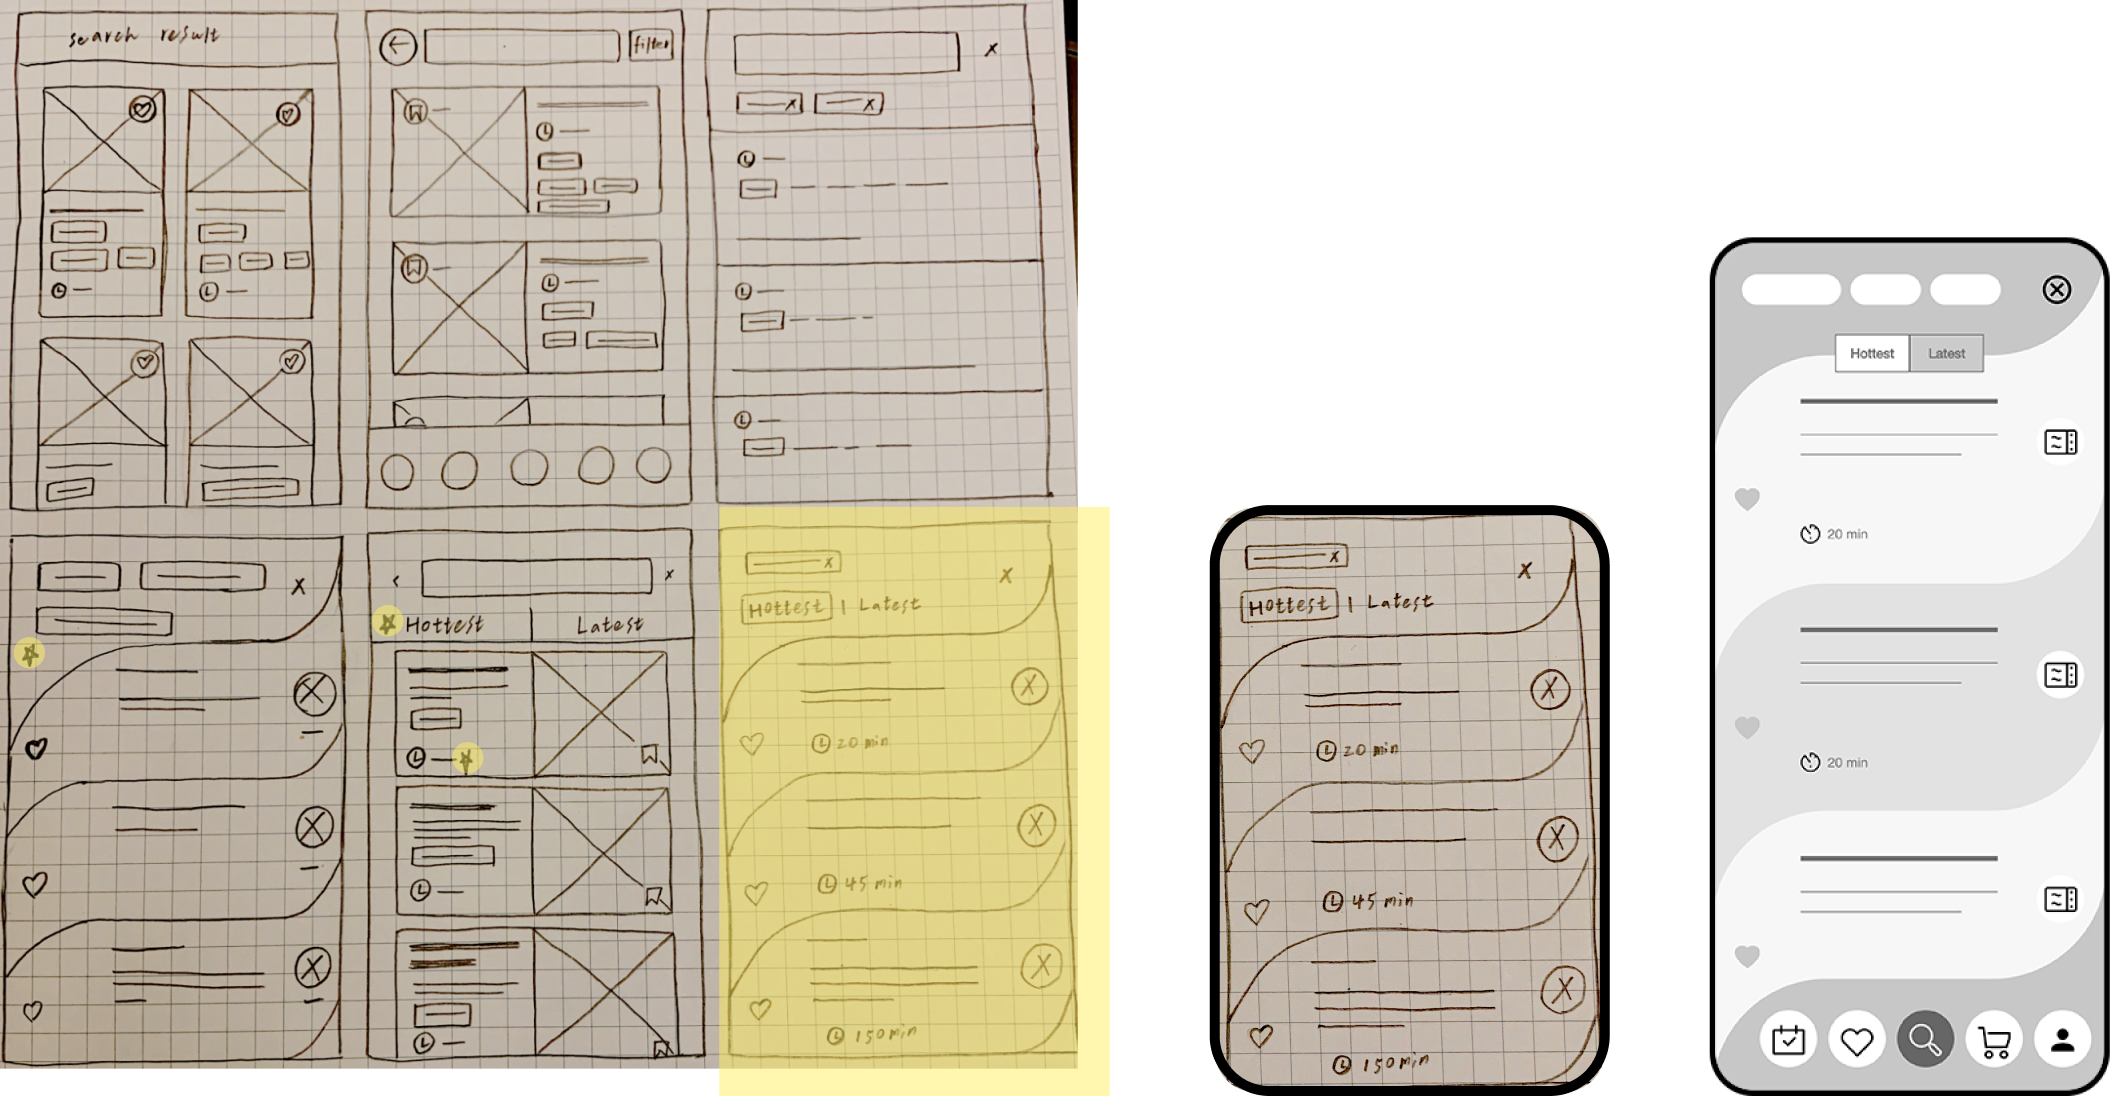 search result
filter
x
x x
x
< x
Hottest Latest
x
Hottest | Latest
20 min
45 min
150 min
x
x
Hottest | Latest
20 min
45 min
150 min
Hottest Latest
20 min
20 min